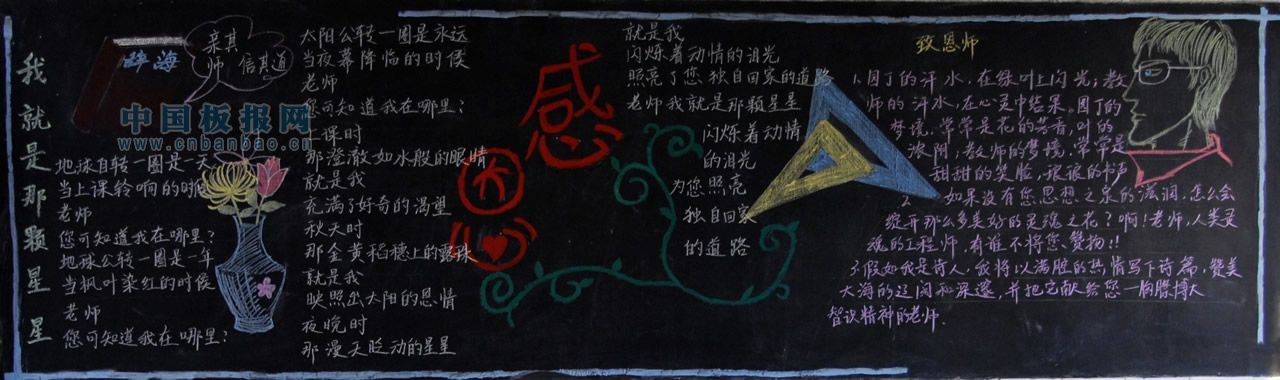 我就是那颗星星
辞海
亲其
师,信其道
中国板报网
www.cnbanbao.cn
地球自转一圈是一天
当上课铃响的时候
老师
您可知道我在哪里?
地球公转一圈是一年
当枫叶染红的时候
老师
您可知道我在哪里?
太阳公转一圈是永远
当夜幕降临的时候
老师
您可知道我在哪里?
上课时
那澄澈如水般的眼睛
就是我
充满了好奇的渴望
秋天时
那金黄稻穗上的露珠
就是我
映照出太阳的恩情
夜晚时
那漫天眨动的星星
感
恩
就是我
闪烁着动情的泪光
照亮了您独自回家的道路
老师我就是那颗星星
闪烁着动情
的泪光
为您照亮
独自回家
的道路
致恩师
1.园丁的汗水,在绿叶上闪光;教
师的汗水,在心灵中结果。园丁的
梦境,常常是花的芳香,叶的
浓阴,教师的梦境,常常是
甜甜的笑脸,琅琅的书声
2.如果没有您思想之泉的滋润,怎么会
绽开那么多美好的灵魂之花?啊!老师,人类灵
魂的工程师,有谁不将您赞扬!!
3.假如我是诗人,我将以满腔的热情写下诗篇,赞美
大海的辽阔和深邃,并把它献给您—胸襟博大
智识精神的老师.